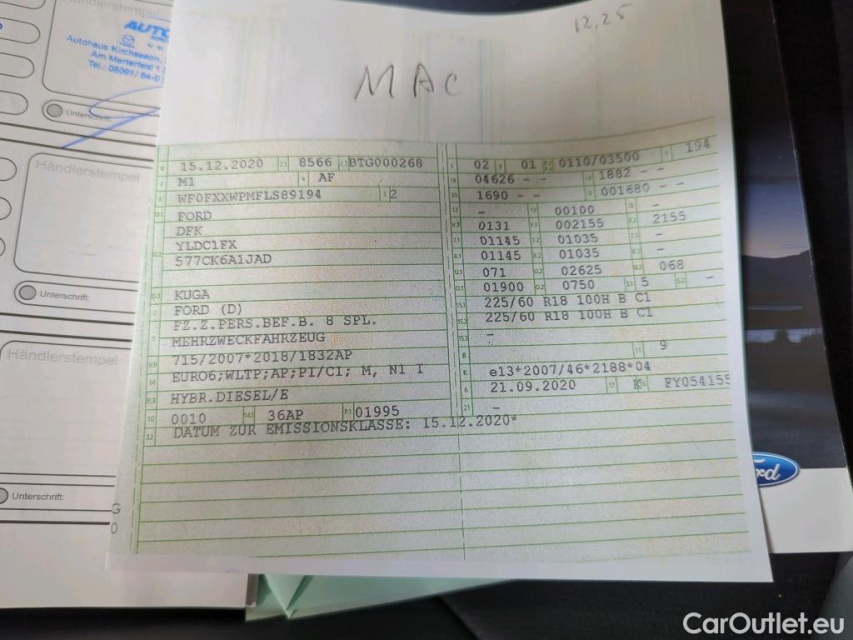 12.25
MAC
AUTO
Autohaus Kirchseeon
Am Marterfeld
Tel.: 08091/
Unterschrift:
Händlerstempel
Unterschrift:
Händlerstempel
Unterschrift:
15.12.2020 8566 BTG000268 02 01 0110/03500 194
M1 AF 04626 - - 1882 - -
WF0FXXWPMFLS89194 2 1690 - - 001680 - -
FORD - 00100 -
DFK 0131 002155 2155
YLDC1FX 01145 01035 -
577CK6A1JAD 01145 01035 -
071 02625 068
KUGA 01900 0750 5 -
FORD (D) 225/60 R18 100H B C1
FZ.Z.PERS.BEF.B. 8 SPL. 225/60 R18 100H B C1
MEHRZWECKFAHRZEUG -
715/2007*2018/1832AP - 9
EURO6;WLTP;AP;PI/CI; M, N1 I e13*2007/46*2188*04
HYBR.DIESEL/E 21.09.2020 K FY054155
0010 36AP 01995 -
DATUM ZUR EMISSIONSKLASSE: 15.12.2020*
CarOutlet.eu